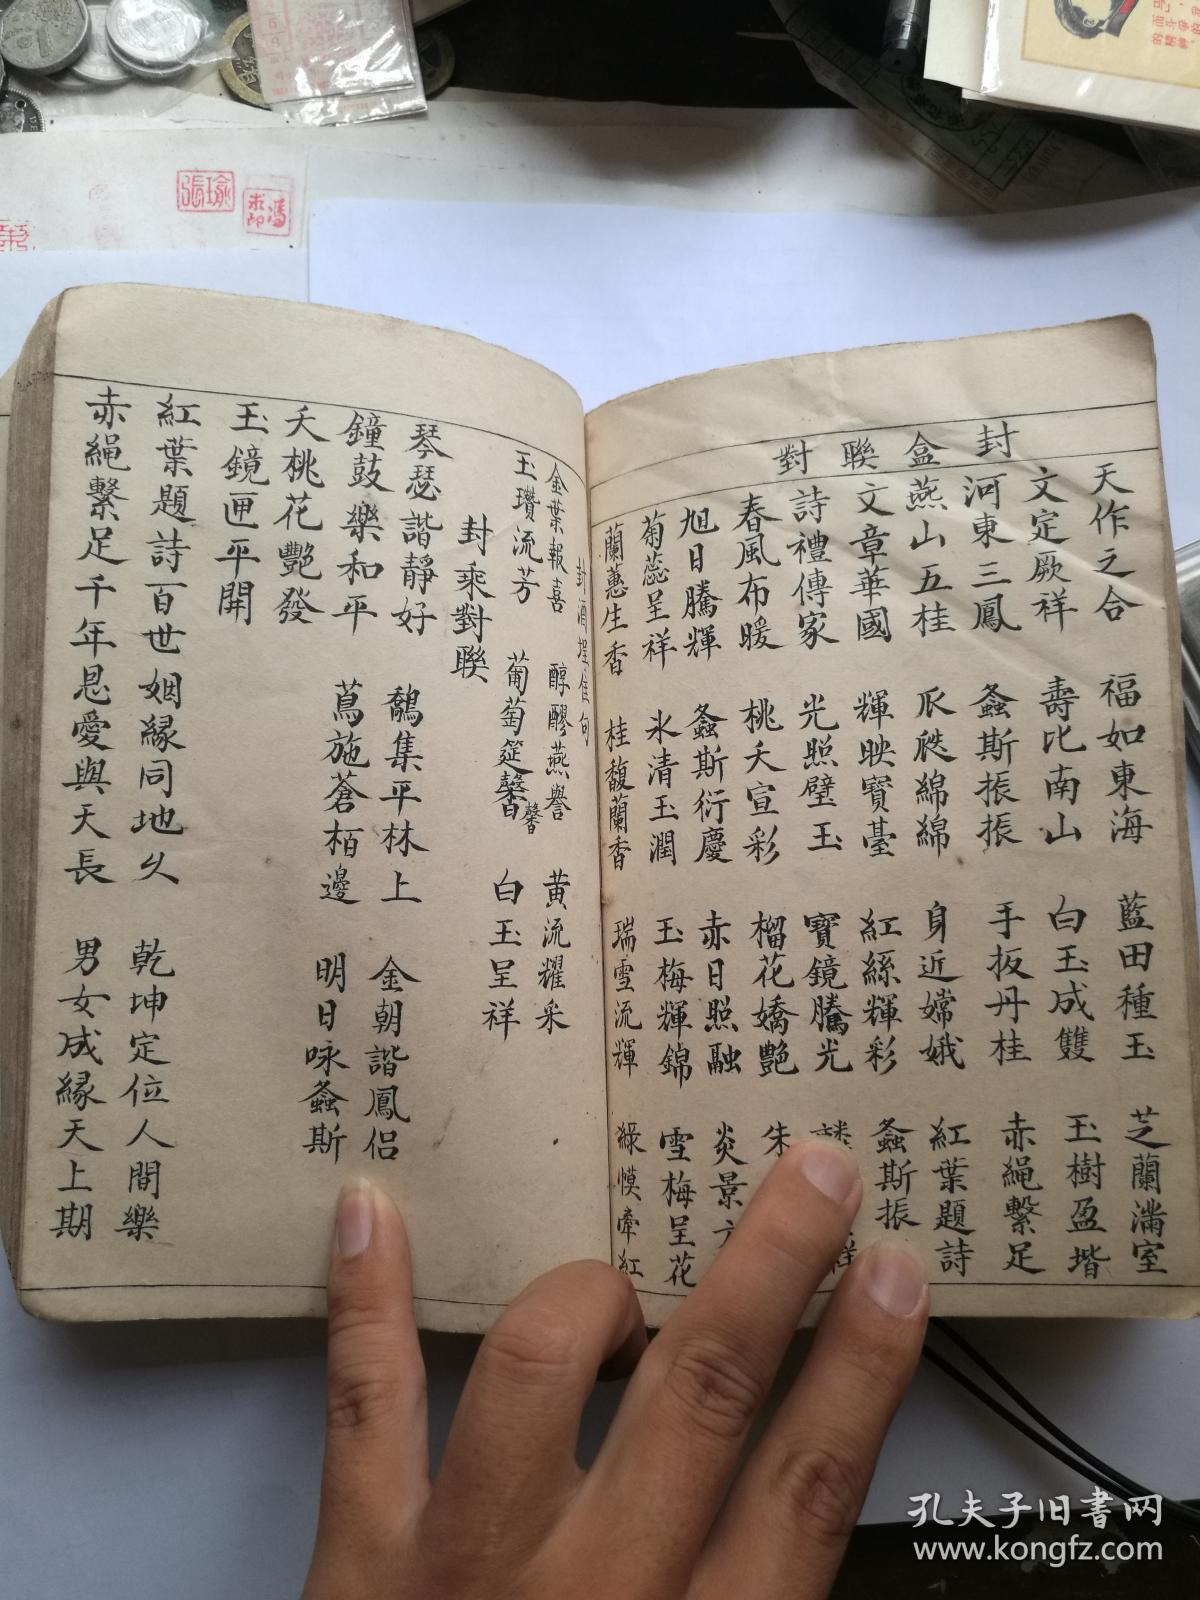 封盒聯對
天作之合 福如東海 藍田種玉 芝蘭滿室
文定厥祥 壽比南山 白玉成雙 玉樹盈堦
河東三鳳 螽斯振振 手扳丹桂 赤繩繫足
燕山五桂 瓜瓞綿綿 身近嫦娥 紅葉題詩
文章華國 輝映寶臺 紅絲輝彩 螽斯振
詩禮傳家 光照璧玉 寶鏡騰光
春風布暖 桃夭宣彩 榴花嬌艷 朱
旭日騰輝 螽斯衍慶 赤日照融 炎景
菊蕊呈祥 氷清玉潤 玉梅輝錦 雪梅呈花
蘭蕙生香 桂馥蘭香 瑞雪流輝 綠幙牽紅
封酒埕隹句
金葉報喜 醇醪燕譽 黄流耀采
玉瓚流芳 葡萄筵馨 馨 白玉呈祥
封乘對聯
琴瑟諧靜好 鷸集平林上 金朝諧鳳侣
鐘鼓樂和平 蔦施蒼栢邊 明日咏螽斯
夭桃花艷發
玉鏡匣平開
紅葉題詩百世姻緣同地久 乾坤定位人間樂
赤繩繫足千年恩愛與天長 男女成緣天上期
張瑜
孔夫子旧书网
www.kongfz.com